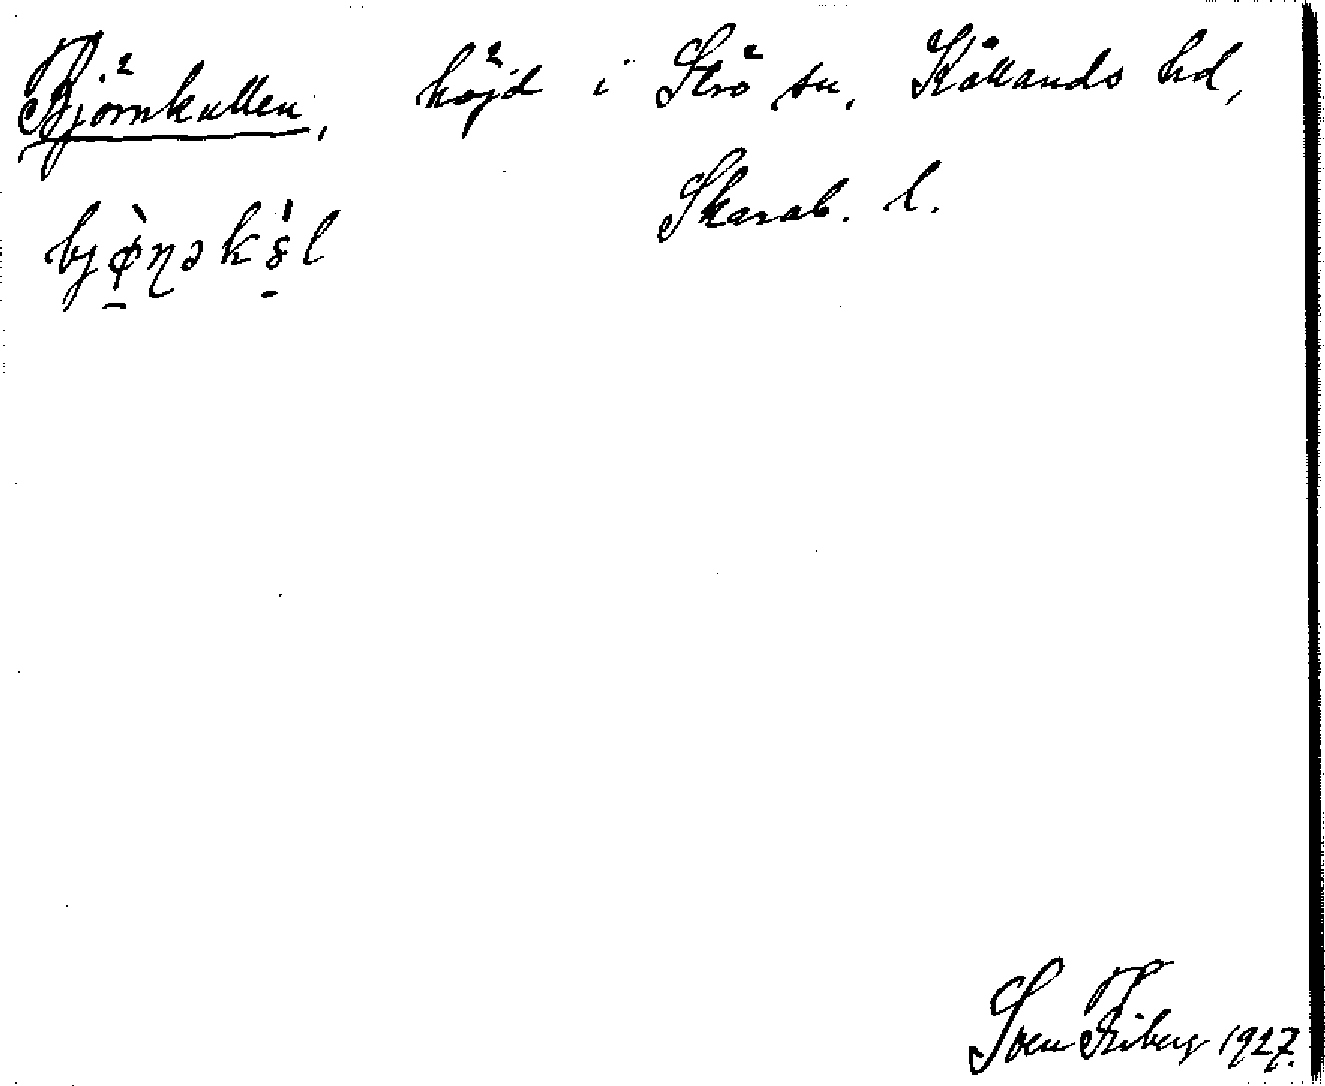 Björnkullen, höjd i Strö sn, Kållands hd,
Skarab. l.
Sven Friberg 1927.